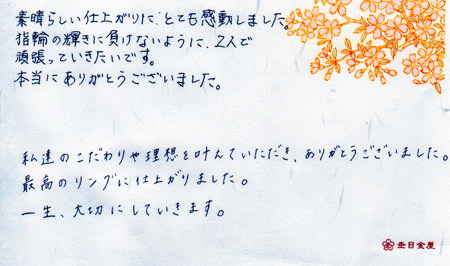 素晴らしい仕上がりに、とても感動しました。
指輪の輝きに負けないように、2人で
頑張っていきたいです。
本当にありがとうございました。
私達のこだわりや理想を叶えていただき、ありがとうございました。
最高のリングに仕上がりました。
一生、大切にしていきます。
杢目金屋